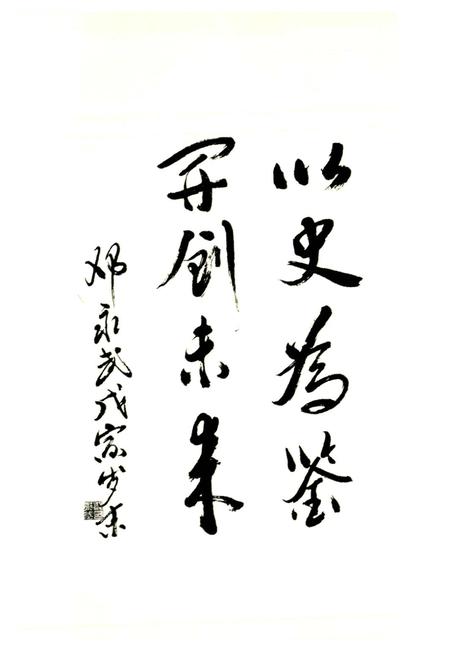 以史為鉴
開創未来
邓永武戊寅岁末